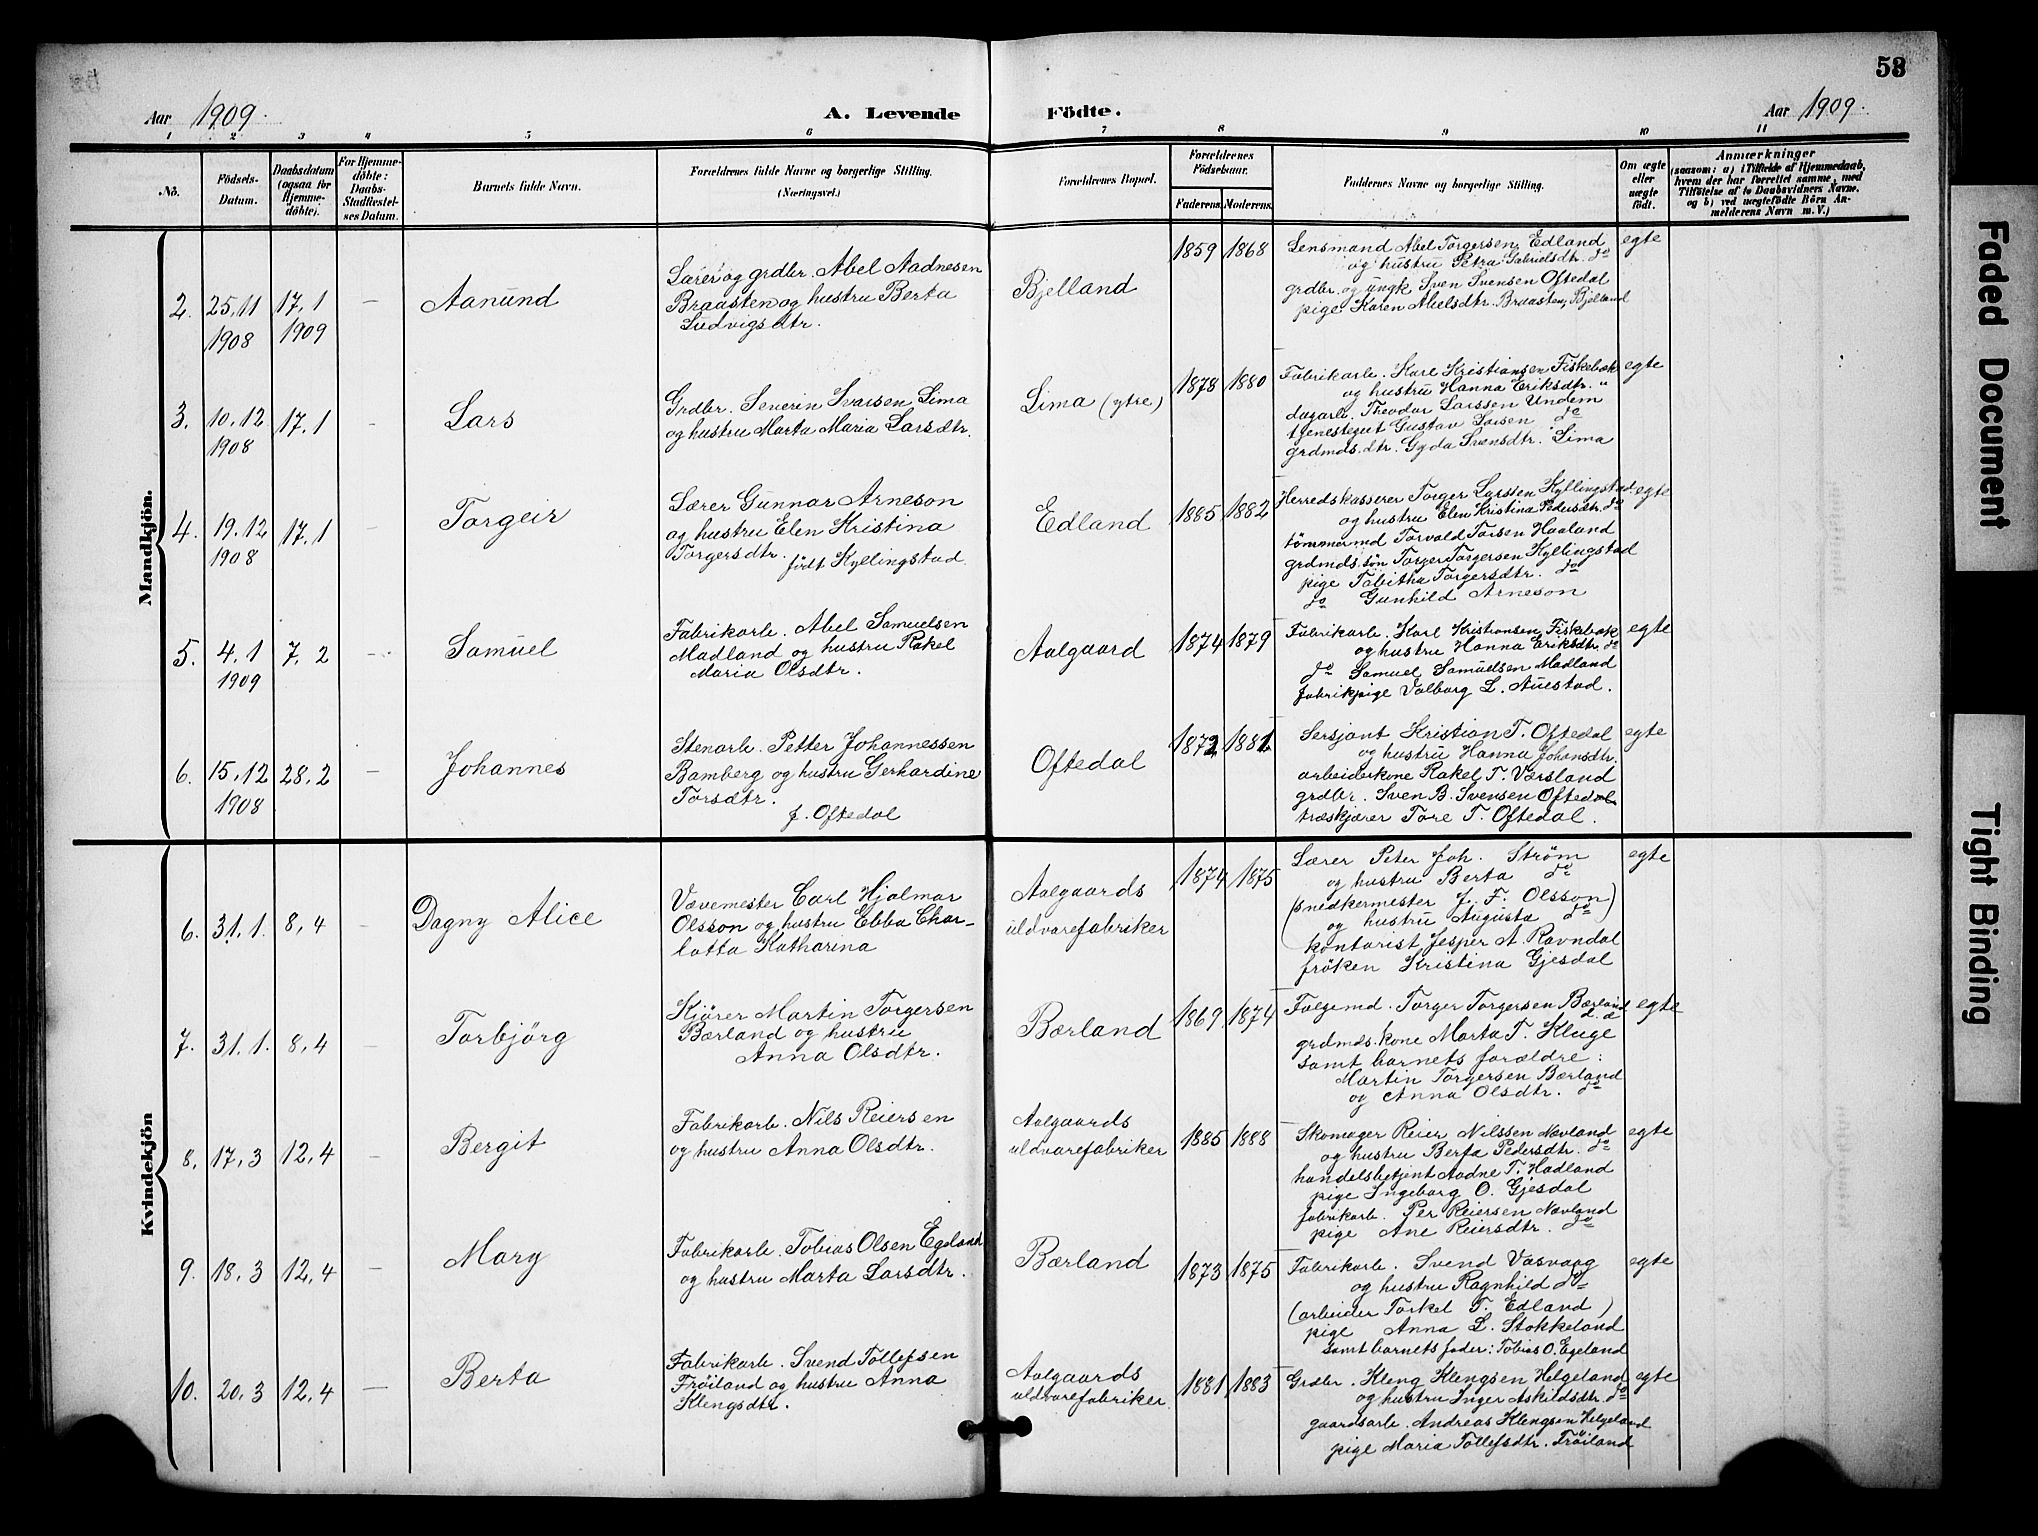 53
Aar 1909.
A. Levende Födte.
Aar 1909.
1 2 3 4 5 6 7 8 9 10 11
No.
Födsels-Datum.
Daabsdatum (ogsaa for Hjemme-döbte).
For Hjemme-döbte: Daabs-Stadfæstel-ses Datum.
Barnets fulde Navn.
Forældrenes fulde Navne og borgerlige Stilling. (Næringsvei.)
Forældrenes Bopæl.
Forældrenes Födselsaar.
Faderens. Moderens.
Faddernes Navne og borgerlige Stilling.
Om ægte eller uægte födt.
Anmærkninger
(saasom: a) i Tilfælde af Hjemmedaab,
hvem der har forrettet samme, med
Tilföielse af to Daabsvidners Navne,
og b) ved uægtefödte Börn An-
melderens Navn m. V.)
Mandkjön.
2. 25.11 1908
17.1 1909
—
Aanund
Lærer og grdbr. Abel Aadnesen
Braasten og hustru Berta
Ludvigsdtr.
Bjelland
1859 1868
Lensmand Abel Torgersen Edland
og hustru Petra Gabrielsdtr. do
grdbr. og ungk. Sven Svensen Oftedal
pige Karen Abelsdtr. Braasten, Bjelland
egte
3. 10.12 1908
17.1
-
Lars
Grdbr. Severin Svarsen Lima
og hustru Marta Maria Larsdtr.
Lima (ytre)
1878 1880
Fabrikarb. Karl Kristiansen Fiskebæk
og hustru Hanna Eriksdtr. "
dagarb. Theodor Larssen Undem
tjenestegut Gustav Larsen do
grdmds.dtr. Gyda Svensdtr. Lima
egte
4. 19.12 1908
17.1
-
Torgeir
Lærer Gunnar Arneson
og hustru Elen Kristina
Torgersdtr. födt Kyllingstad
Edland
1885 1882
Herredskasserer Torger Larssen Kyllingstad
og hustru Elen Kristina Pedersdtr. do
tømmermd Torvald Torsen Haaland
grdmds.søn Torger Torgersen Kyllingstad
pige Tabitha Torgersdtr. do
do Gunhild Arneson
egte
5. 4.1 1909
7.2
-
Samuel
Fabrikarb. Abel Samuelsen
Madland og hustru Rakel
Maria Olsdtr.
Aalgaard
1874 1879
Fabrikarb. Karl Kristiansen Fiskebæk
og hustru Hanna Eriksdtr. do
do Samuel Samuelsen Madland
fabrikpige Valborg L. Auestad.
egte
6. 15.12 1908
28.2
—
Johannes
Stenarb. Petter Johannessen
Bamberg og hustru Gerhardine
Torsdtr.
f. Oftedal
Oftedal
1872 1881
Sersjant Kristian T. Oftedal
og hustru Hanna Johansdtr.
arbeiderkone Rakel T. Værsland
grdbr. Sven B. Svensen Oftedal
træskjærer Tore T. Oftedal.
egte
Kvindekjön
6. 31.1.
8.4
—
Dagny Alice
Vævemester Carl Hjalmar
Olsson og hustru Ebba Char-
lotta Katharina
Aalgaards
uldvarefabriker
1874 1875
Lærer Peter Joh. Strøm
og hustru Berta do
(snedkermester J. F. Olsson)
og hustru Augusta do
kontorist Jesper A. Ravndal
frøken Kristina Gjesdal
egte
7. 31.1.
8.4
—
Torbjörg
Kjører Martin Torgersen
Bærland og hustru
Anna Olsdtr.
Bærland
1869. 1874
Folgemd. Torger Torgersen Bærland
grdmds.kone Marta T. Kluge
samt barnets forældre:
Martin Torgersen Bærland
og Anna Olsdtr. do
egte
8. 17.3
12.4
—
Bergit
Fabrikarb. Nils Reiersen
og hustru Anna Olsdtr.
Aalgaards
uldvarefabriker
1885 1888
Skomager Reier Nilssen Nævland
og hustru Berta Pedersdtr. do
handelsbetjent Aadne T. Hadland
pige Ingeborg O. Gjesdal
fabrikarb. Per Reiersen Nævland
pige Ane Reiersdtr. do
egte
9. 18.3
12.4
—
Mary
Fabrikarb. Tobias Olsen Egeland
og hustru Marta Larsdtr.
Bærland
1873 1875
Fabrikarb. Svend Vasvaag
og hustru Ragnhild do
(arbeider Torkel T. Edland)
pige Anna L. Stokkeland
samt barnets fader: Tobias O. Egeland
egte
10. 20.3
12.4
—
Berta
Fabrikarb. Svend Tollefsen
Frøiland og hustru Anna
Klengsdtr.
Aalgaards
uldvarefabriker.
1881 1883
Grdbr. Kleng Klengsen Helgeland
og hustru Inger Askildsdtr. do
gaardsarb. Andreas Klengsen Helgeland
pige Maria Tollefsdtr. Frøiland
egte
Faded Document
Tight Binding